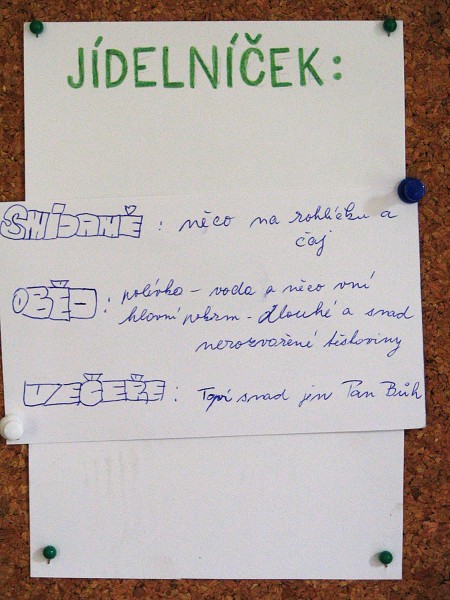 JÍDELNÍČEK:
SNÍDANĚ : něco na rohlíčku a
čaj
OBĚD : polévka - voda a něco v ní
hlavní pokrm - dlouhé a snad
nerozvařené těstoviny
VEČEŘE : snad jen Pan Bůh